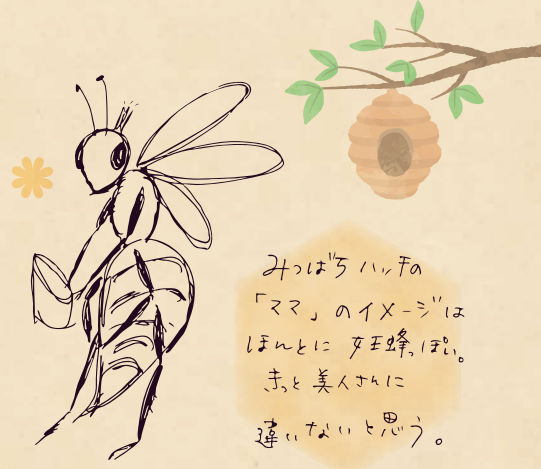 みつばち ハッチの
「ママ」のイメージは
ほんとに 女王蜂っぽい。
きっと 美人さんに
違いないと思う。